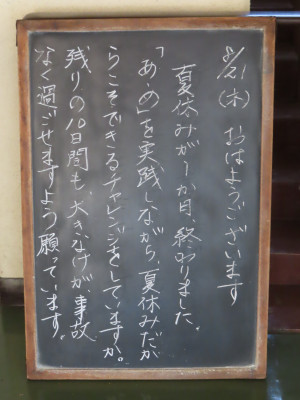 8/21(木) おはようございます
夏休みが1か月、終わりました。
「あ・め」を実践しながら、夏休みだが
らこそできるチャレンジをしていますか。
残りの10日間も、大きなけが、事故
なく過ごせますよう願っています。